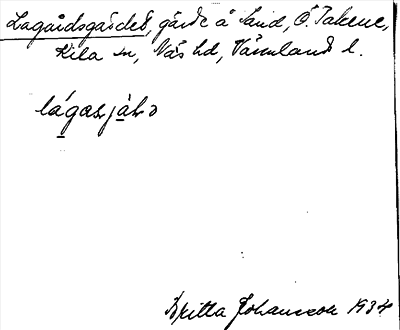 Lagårdsgärdet, gärde å Sand, Ö. Takene,
Kila sn, Näs hd, Värmlands l.
lágasjáḷə
Britta Johansson 1934